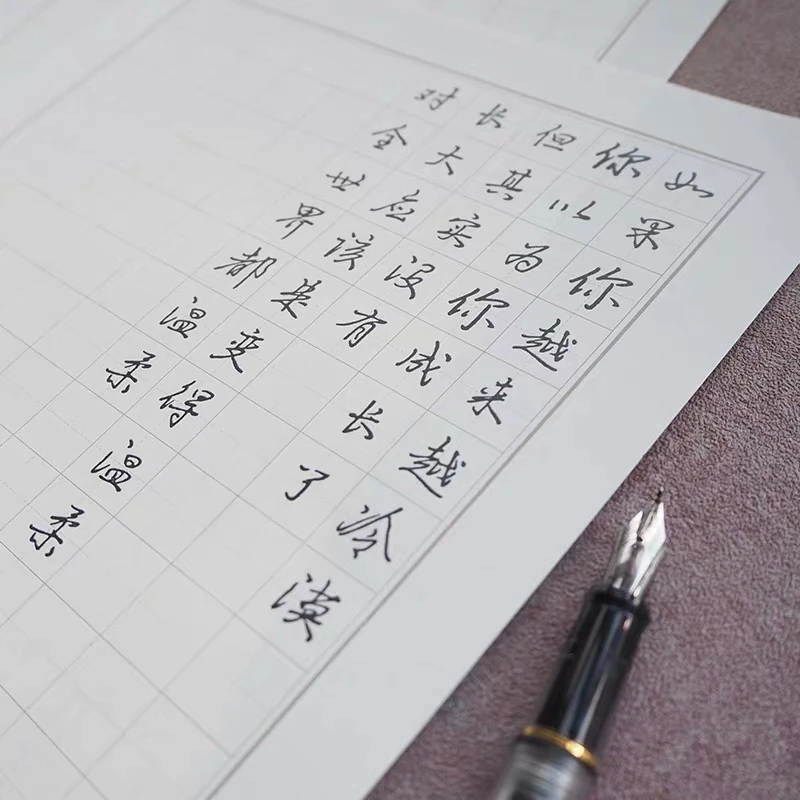 如果你越来越冷漠
你以为你成长了
但其实没有
长大应该是变得温柔
对全世界都温柔